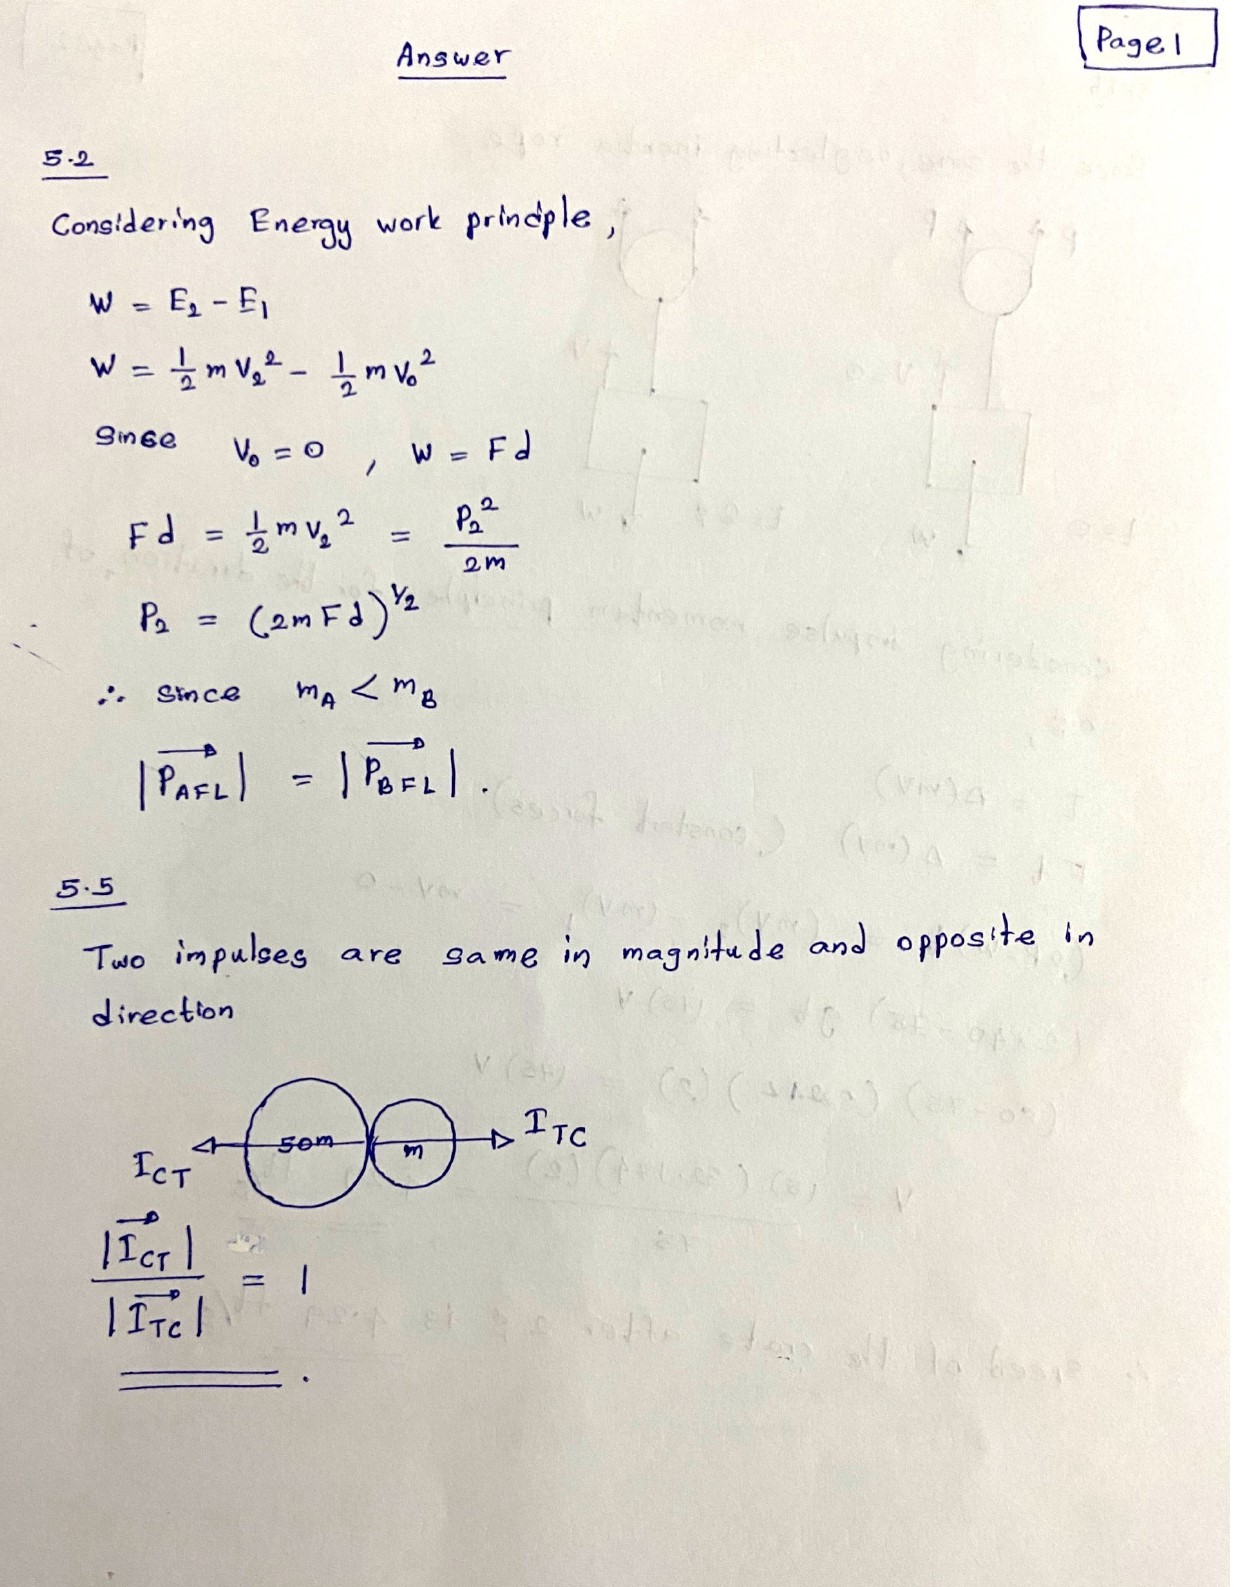 Page 1
Answer
5.2
Considering Energy work principle,
W = E₂ - E₁
W = 1/2 m V₂² - 1/2 m V₀²
Since V₀ = 0 , W = Fd
Fd = 1/2 m v₂² = P₂²/2m
P₂ = (2mFd)^1/2
∴ since m_A < m_B
|P⃗_AFL| = |P⃗_BFL|.
5.5
Two impulses are same in magnitude and opposite in
direction
I_CT 50m m I_TC
|I⃗_CT| / |I⃗_TC| = 1